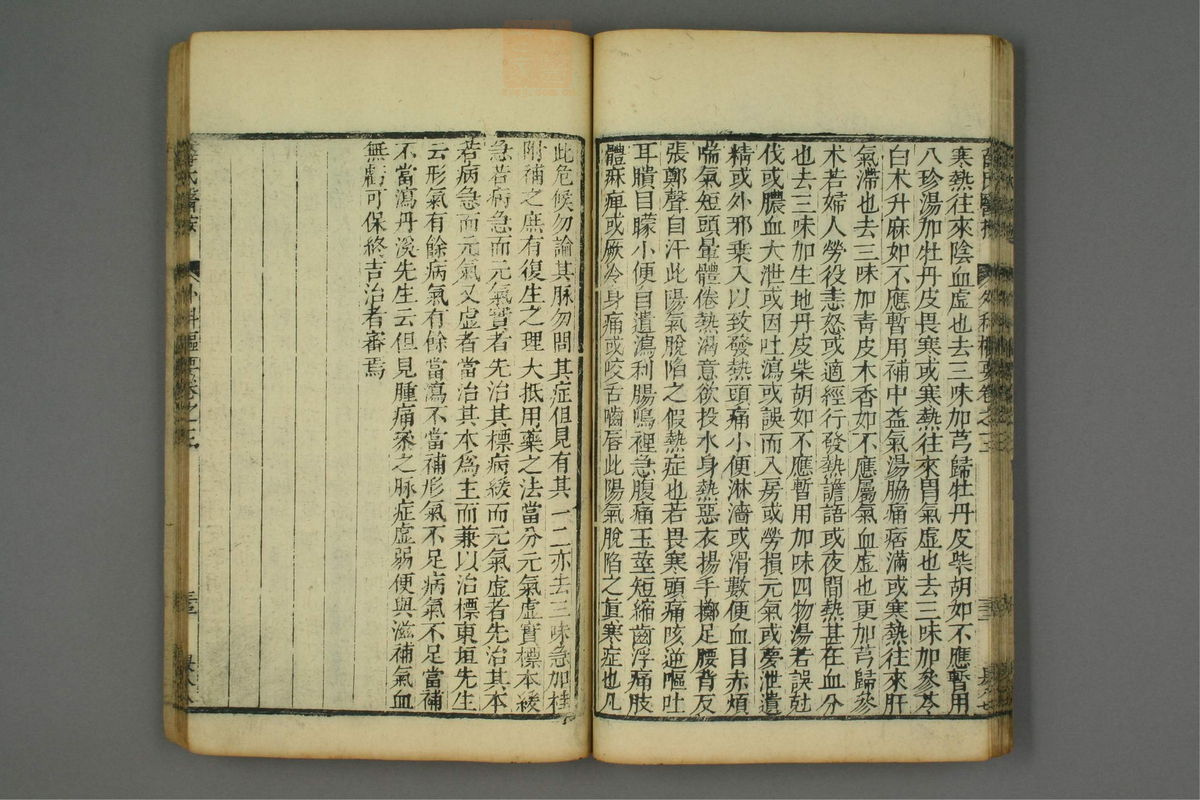 寒熱往來陰血虛也去三味加芎歸牡丹皮柴胡如不應暫用
八珍湯加牡丹皮畏寒或寒熱往來胃氣虛也去三味加參苓
白术升麻如不應暫用補中益氣湯脇痛痞滿或寒熱往來肝
氣滯也去三味加靑皮木香如不應屬氣血虛也更加芎歸參
术若婦人勞役恚怒或適經行發熱譫語或夜間熱甚在血分
也去三味加生地丹皮柴胡如不應暫用加味四物湯若誤尅
伐或膿血大泄或因吐瀉或誤而入房或勞損元氣或夢泄遺
精或外邪乗入以致發熱頭痛小便淋濇或滑數便血目赤煩
喘氣短頭暈體倦熱渴意欲投水身熱惡衣揚手擲足腰背反
張鄭聲自汗此陽氣脫陷之假熱症也若畏寒頭痛咳逆嘔吐
耳聵目矇小便自遺瀉利腸鳴裡急腹痛玉莖短縮齒浮痛肢
體痳痺或厥冷身痛或咬舌嚙唇此陽氣脫陷之眞寒症也凡
此危候勿論其脉勿問其症但見有其一二亦去三味急加桂
附補之庶有復生之理大抵用藥之法當分元氣虛實標本緩
急若病急而元氣實者先治其標病緩而元氣虛者先治其本
若病急而元氣又虛者當治其本爲主而兼以治標東垣先生
云形氣有餘病氣有餘當瀉不當補形氣不足病氣不足當補
不當瀉丹溪先生云但見腫痛參之脉症虛弱便與滋補氣血
無虧可保終吉治者審焉
薛氏醫按
外科樞要卷之三